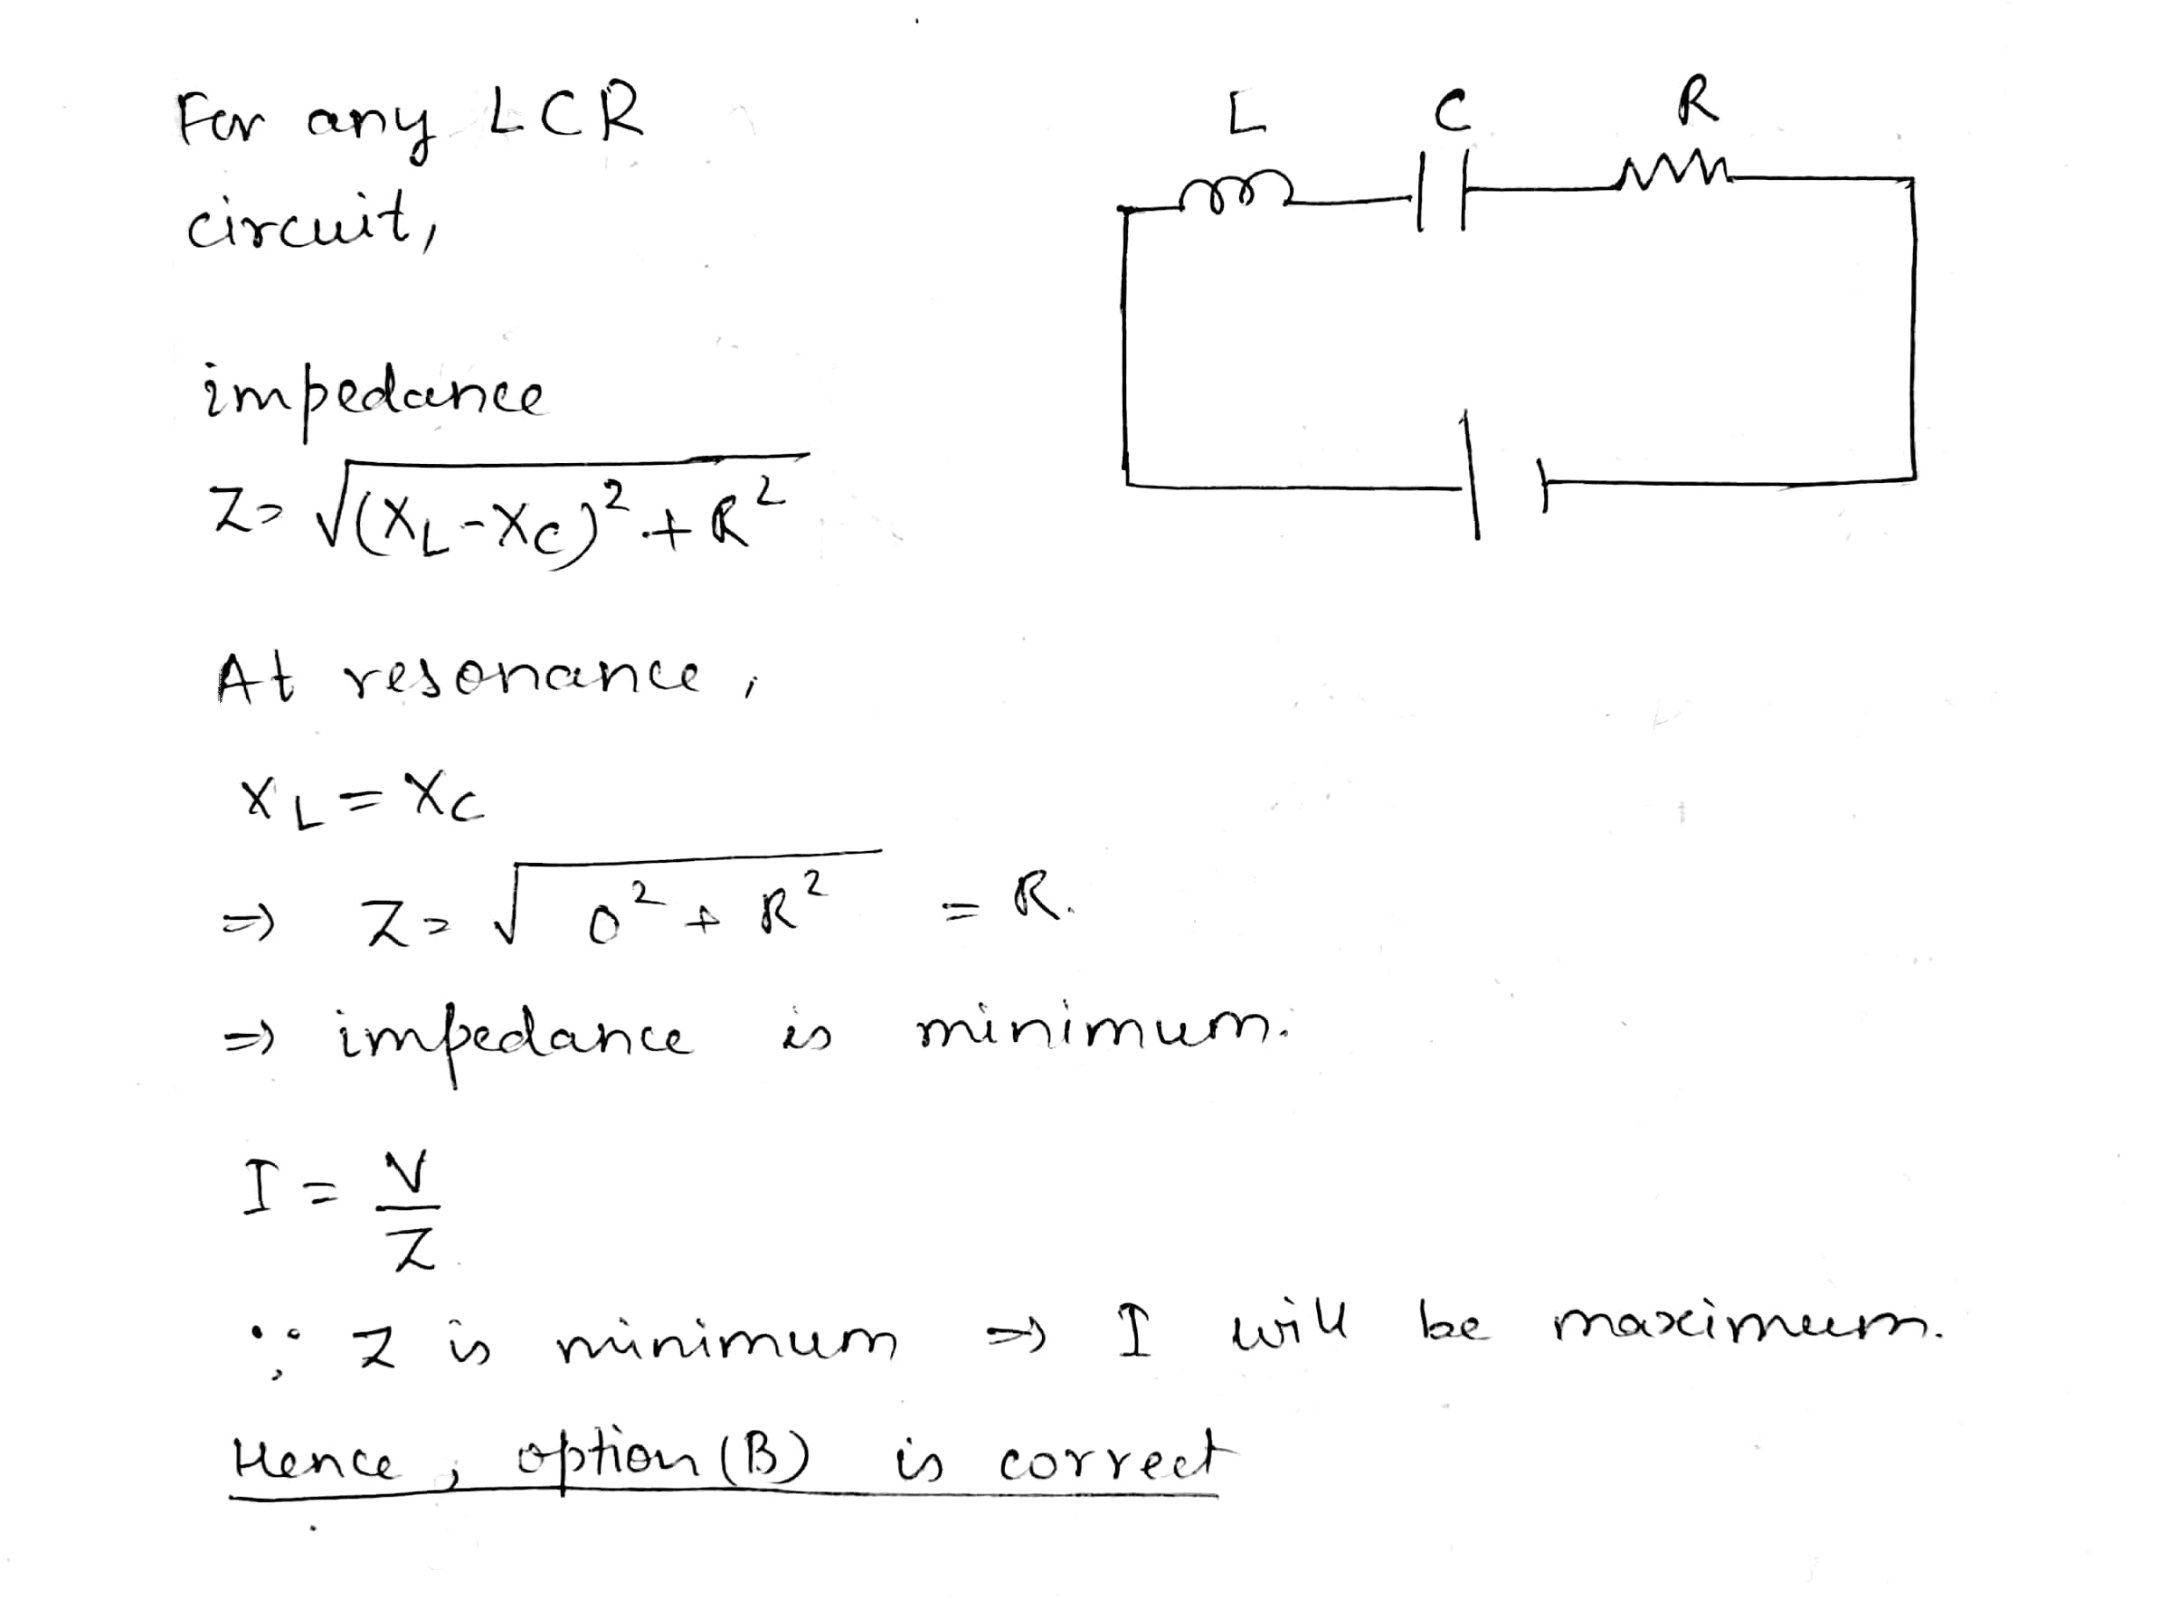 For any LCR
circuit,
L C R
impedance
Z = √((X_L - X_C)² + R²)
At resonance,
X_L = X_C
⇒ Z = √(0² + R²) = R.
⇒ impedance is minimum.
I = V/Z
∵ Z is minimum ⇒ I will be maximum.
Hence, option (B) is correct